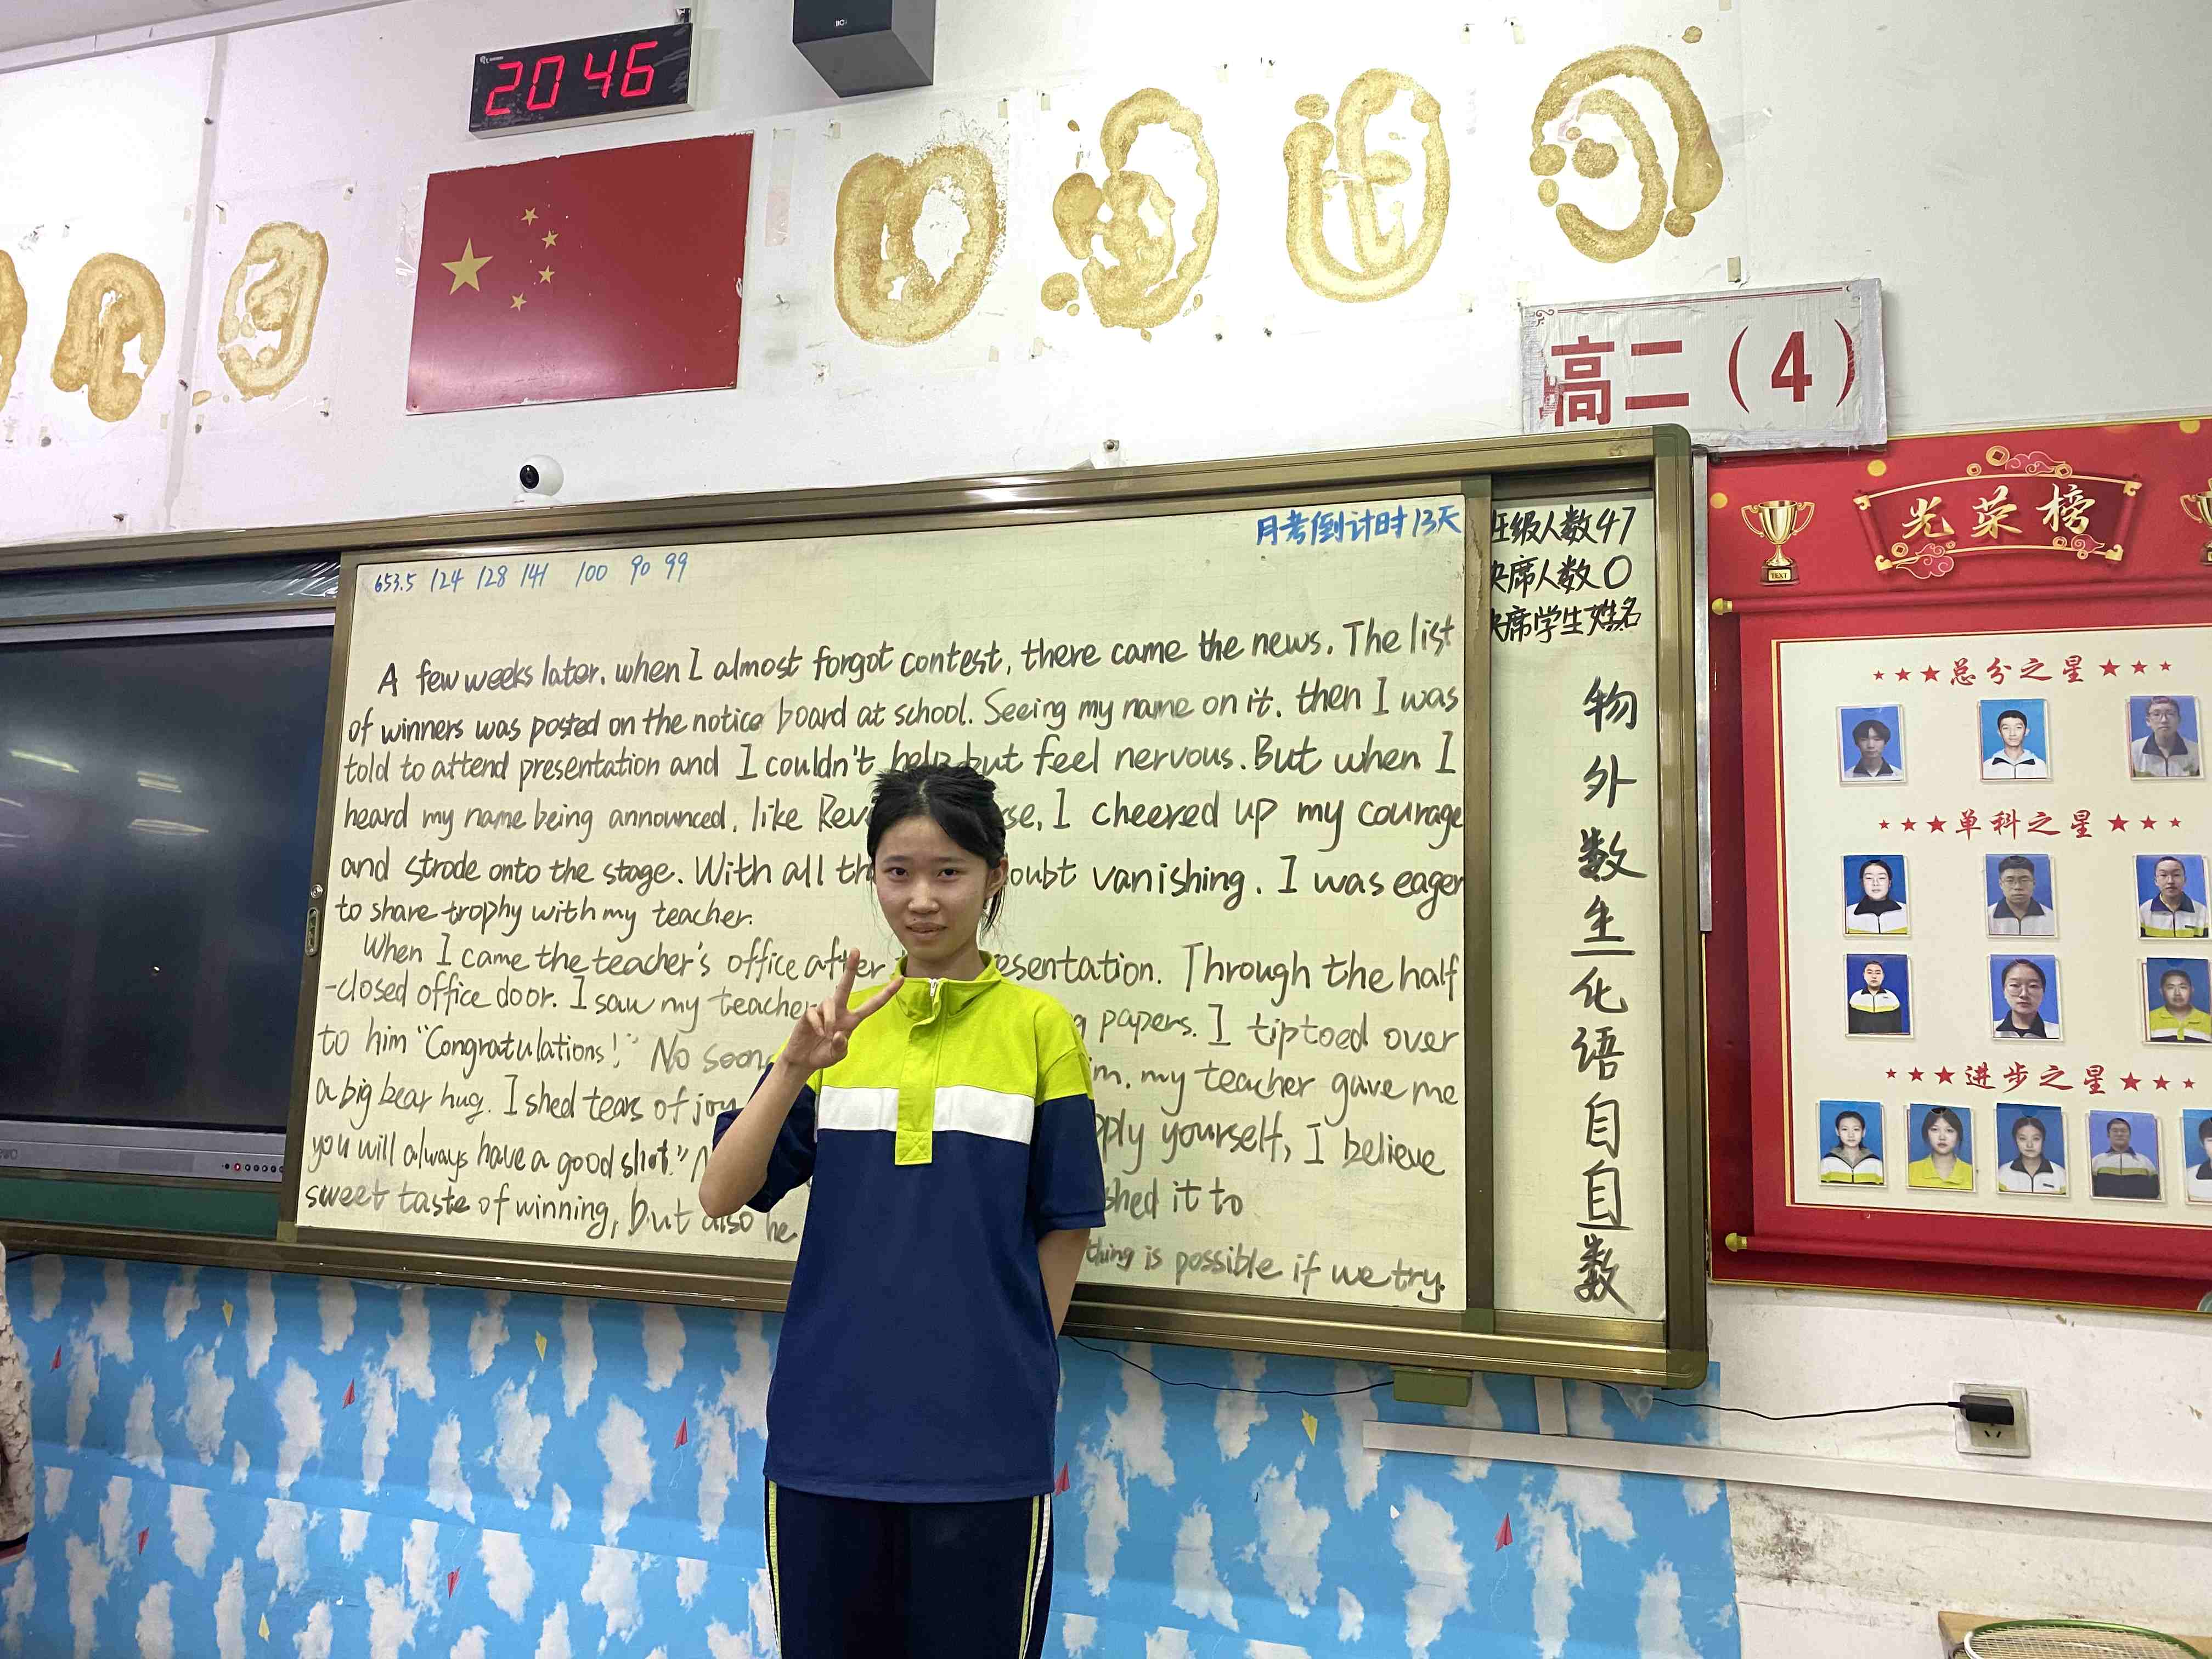 20 46
高二（4）
月考倒计时13天
653.5 124 128 141 100 90 99
A few weeks later. when I almost forgot contest, there came the news. The list
of winners was posted on the notice board at school. Seeing my name on it. then I was
told to attend presentation and I couldn't help but feel nervous. But when I
heard my name being announced, like se, I cheered up my courage
and strode onto the stage. With all oubt vanishing. I was eager
to share trophy with my teacher.
When I came the teacher's office after esentation. Through the half
-closed office door. I saw my teacher papers. I tiptoed over
to him "Congratulations!" No soon m. my teacher gave me
a big bear hug. I shed tears of joy pply yourself, I believe
you will always have a good shot." shed it to
sweet taste of winning, but also he thing is possible if we try.
班级人数47
缺席人数0
缺席学生姓名
物
外
数
生
化
语
自
自
数
光荣榜
★★★总分之星★★★
★★★单科之星★★★
★★★进步之星★★★
TEXT